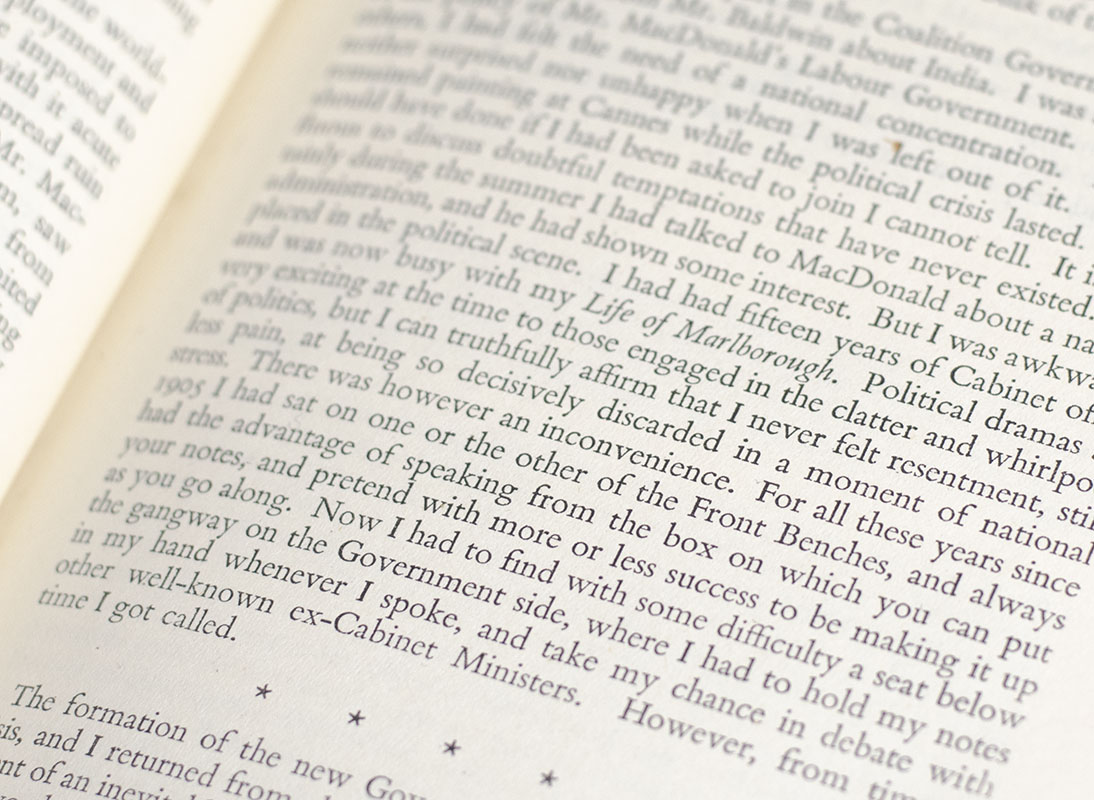 the world.
ployment and
imposed to
with it acute
spread ruin
Mr. Mac-
m, saw
from
in the Coalition Govern
Mr. Baldwin about India. I was
of Mr. MacDonald's Labour Government.
others, I had felt the need of a national concentration.
neither surprised nor unhappy when I was left out of it.
remained painting at Cannes while the political crisis lasted.
should have done if I had been asked to join I cannot tell. It i
to discuss doubtful temptations that have never existed.
during the summer I had talked to MacDonald about a na
administration, and he had shown some interest. But I was awkwa
placed in the political scene. I had had fifteen years of Cabinet of
and was now busy with my Life of Marlborough. Political dramas
very exciting at the time to those engaged in the clatter and whirlpo
of politics, but I can truthfully affirm that I never felt resentment, stil
less pain, at being so decisively discarded in a moment of national
stress. There was however an inconvenience. For all these years since
1905 I had sat on one or the other of the Front Benches, and always
had the advantage of speaking from the box on which you can put
your notes, and pretend with more or less success to be making it up
as you go along. Now I had to find with some difficulty a seat below
the gangway on the Government side, where I had to hold my notes
in my hand whenever I spoke, and take my chance in debate with
other well-known ex-Cabinet Ministers. However, from tim
time I got called.
* * * *
The formation of the new Gov
sis, and I returned from
nt of an inevit